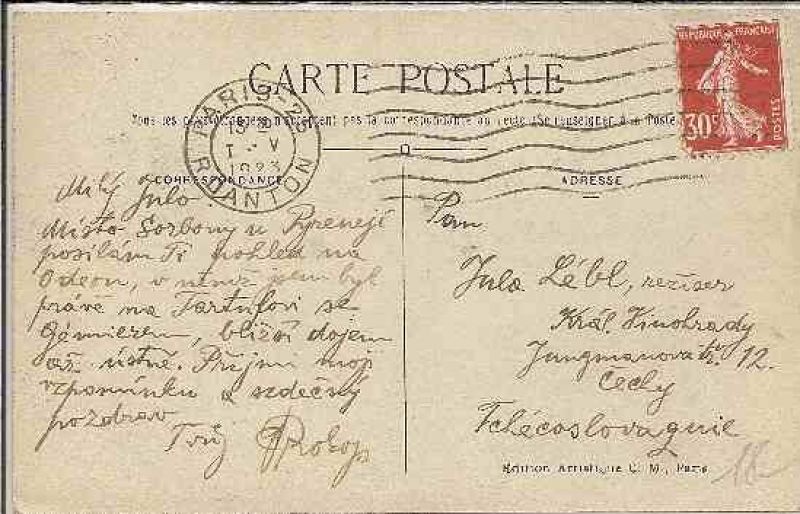 CARTE POSTALE
REPUBLIQUE FRANÇAISE
30c
POSTES
PARIS - 25
R. DANTON
1923
Tous les pays étrangers n'acceptent pas la correspondance au recto (Se renseigner à la Poste)
CORRESPONDANCE
ADRESSE
Milý Julo
Místo Sorbony u Pyrenejí
posílám Ti pohled na
Odeon, v němž jsem byl
právě na Tartufovi se
Gémierem, bližší dojem
až ústně. Přijmi moji
vzpomínku a srdečný
pozdrav
Tvůj Prokop
Pan
Jula Lébl, režiser
Král. Vinohrady
Jungmanova tř. 12.
Čechy
Tchécoslovaquie
Edition Artistique C. M., Paris